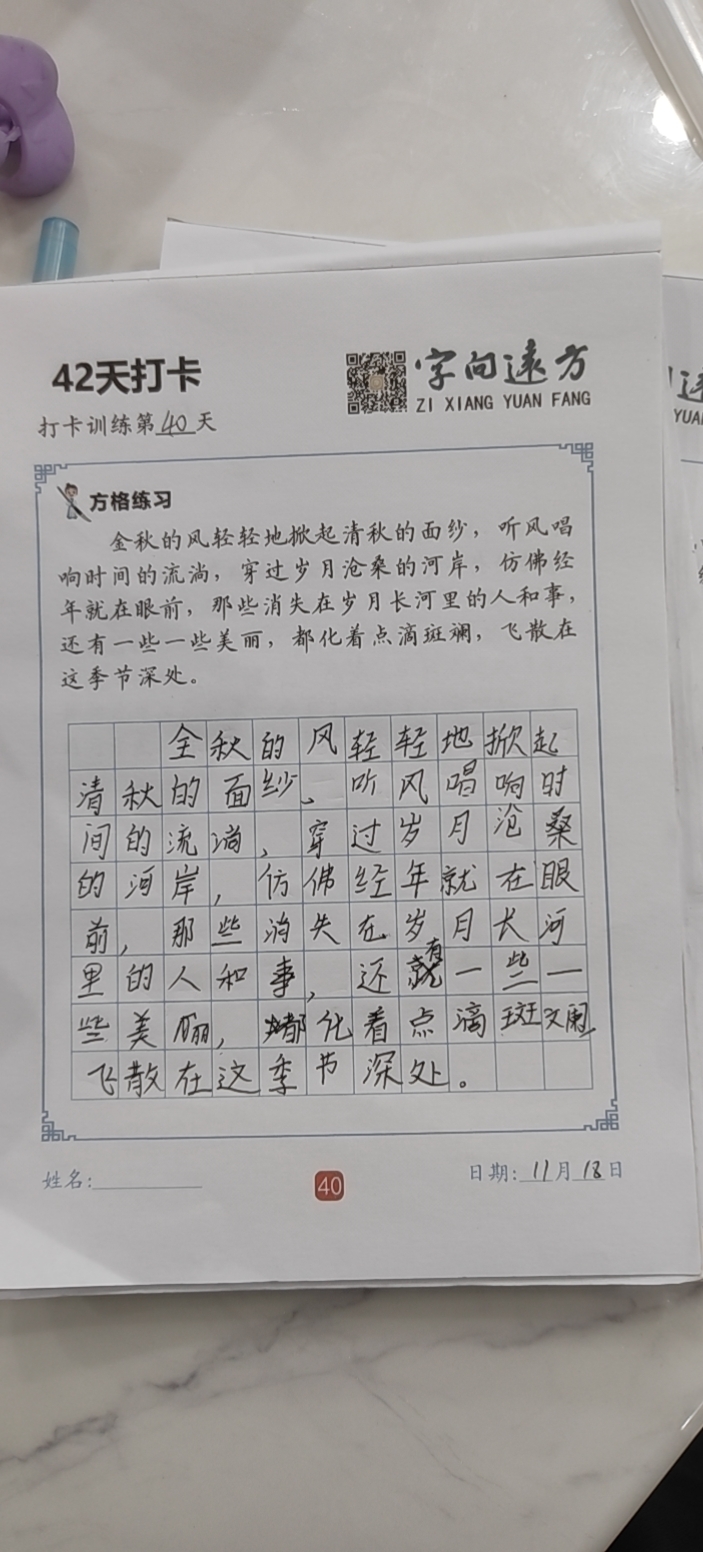 42天打卡
字向遠方
ZI XIANG YUAN FANG
打卡训练第40天
方格练习
金秋的风轻轻地掀起清秋的面纱，听风唱
响时间的流淌，穿过岁月沧桑的河岸，仿佛经
年就在眼前，那些消失在岁月长河里的人和事，
还有一些一些美丽，都化着点滴斑斓，飞散在
这季节深处。
全秋的风轻轻地掀起
清秋的面纱、听风唱响时
间的流淌，穿过岁月沧桑
的河岸，仿佛经年就在眼
前，那些消失在岁月长河
里的人和事，还有一些一
些美丽，都化着点滴斑斓
飞散在这季节深处。
姓名:
40
日期:11月18日
YUA